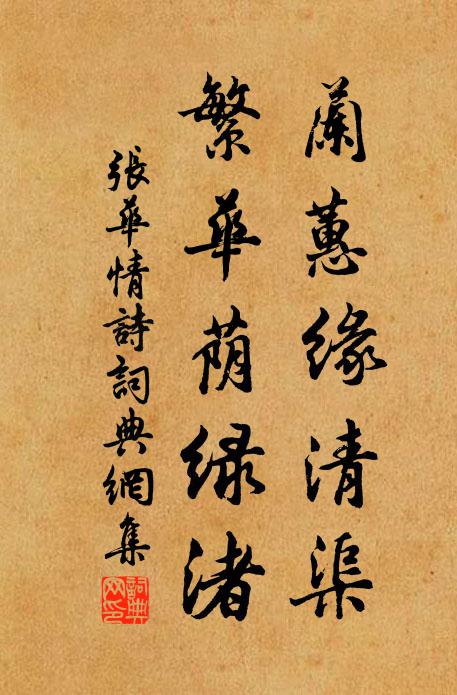 蘭蕙緣清渠
繁華蔭綠渚
張華情詩詞典網集
詞典网印